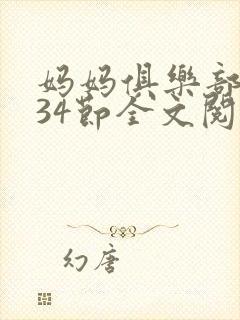 妈妈俱樂部
34節全文閱
幻唐